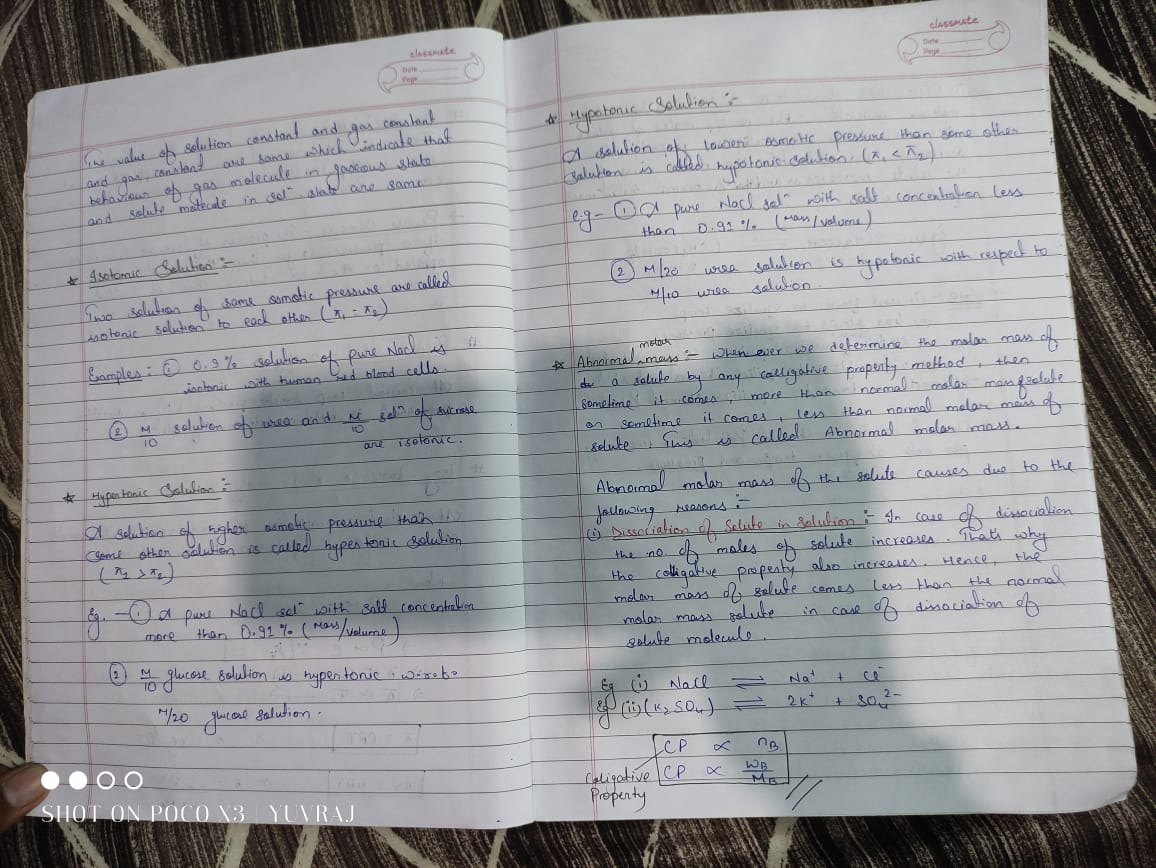 classmate
Date
Page
The value of solution constant and gas constant
and gas constant are same which indicate that
behaviour of gas molecule in gaseous state
and solute molecule in solⁿ state are same
☆ Isotomic Solution :-
Two solution of same osmotic pressure are called
isotonic solution to each other (π₁ = π₂)
Examples : ① 0.9% solution of pure Nacl is
isotonic with human red blood cells.
② M/10 solution of urea and M/10 solⁿ of sucrose
are isotonic.
☆ Hypertonic Solution :-
A solution of higher osmotic pressure than
some other solution is called hypertonic solution
(π₁ > π₂)
Eg. - ① A pure Nacl solⁿ with salt concentration
more than 0.91% (Mass/volume)
② M/10 glucose solution is hypertonic w.r.to
M/20 glucose solution.
SHOT ON POCO X3 | YUVRAJ
classmate
Date
Page
☆ Hypotonic Solution :-
A solution of lower osmotic pressure than some other
solution is called hypotonic solution. (π₁ < π₂)
e.g - ① A pure Nacl solⁿ with salt concentration less
than 0.91 % (Mass/volume)
② M/20 urea solution is hypotonic with respect to
M/10 urea solution
☆ Abnormal molar mass :- When ever we determine the molar mass of
a solute by any colligative property method, then
sometime it comes more than normal molar mass of solute
or sometime it comes, less than normal molar mass of
solute. This is called Abnormal molar mass.
Abnormal molar mass of the solute causes due to the
following reasons :-
(i) Dissociation of Solute in Solution :- In case of dissociation
the no. of moles of solute increases. That's why
the colligative property also increases. Hence, the
molar mass of solute comes less than the normal
molar mass solute in case of dissociation of
solute molecule.
Eg (i) Nacl ⇌ Na⁺ + Cl⁻
Eg (ii) (K₂SO₄) ⇌ 2K⁺ + SO₄²⁻
CP ∝ nB
CP ∝ WB/MB
Colligative
Property